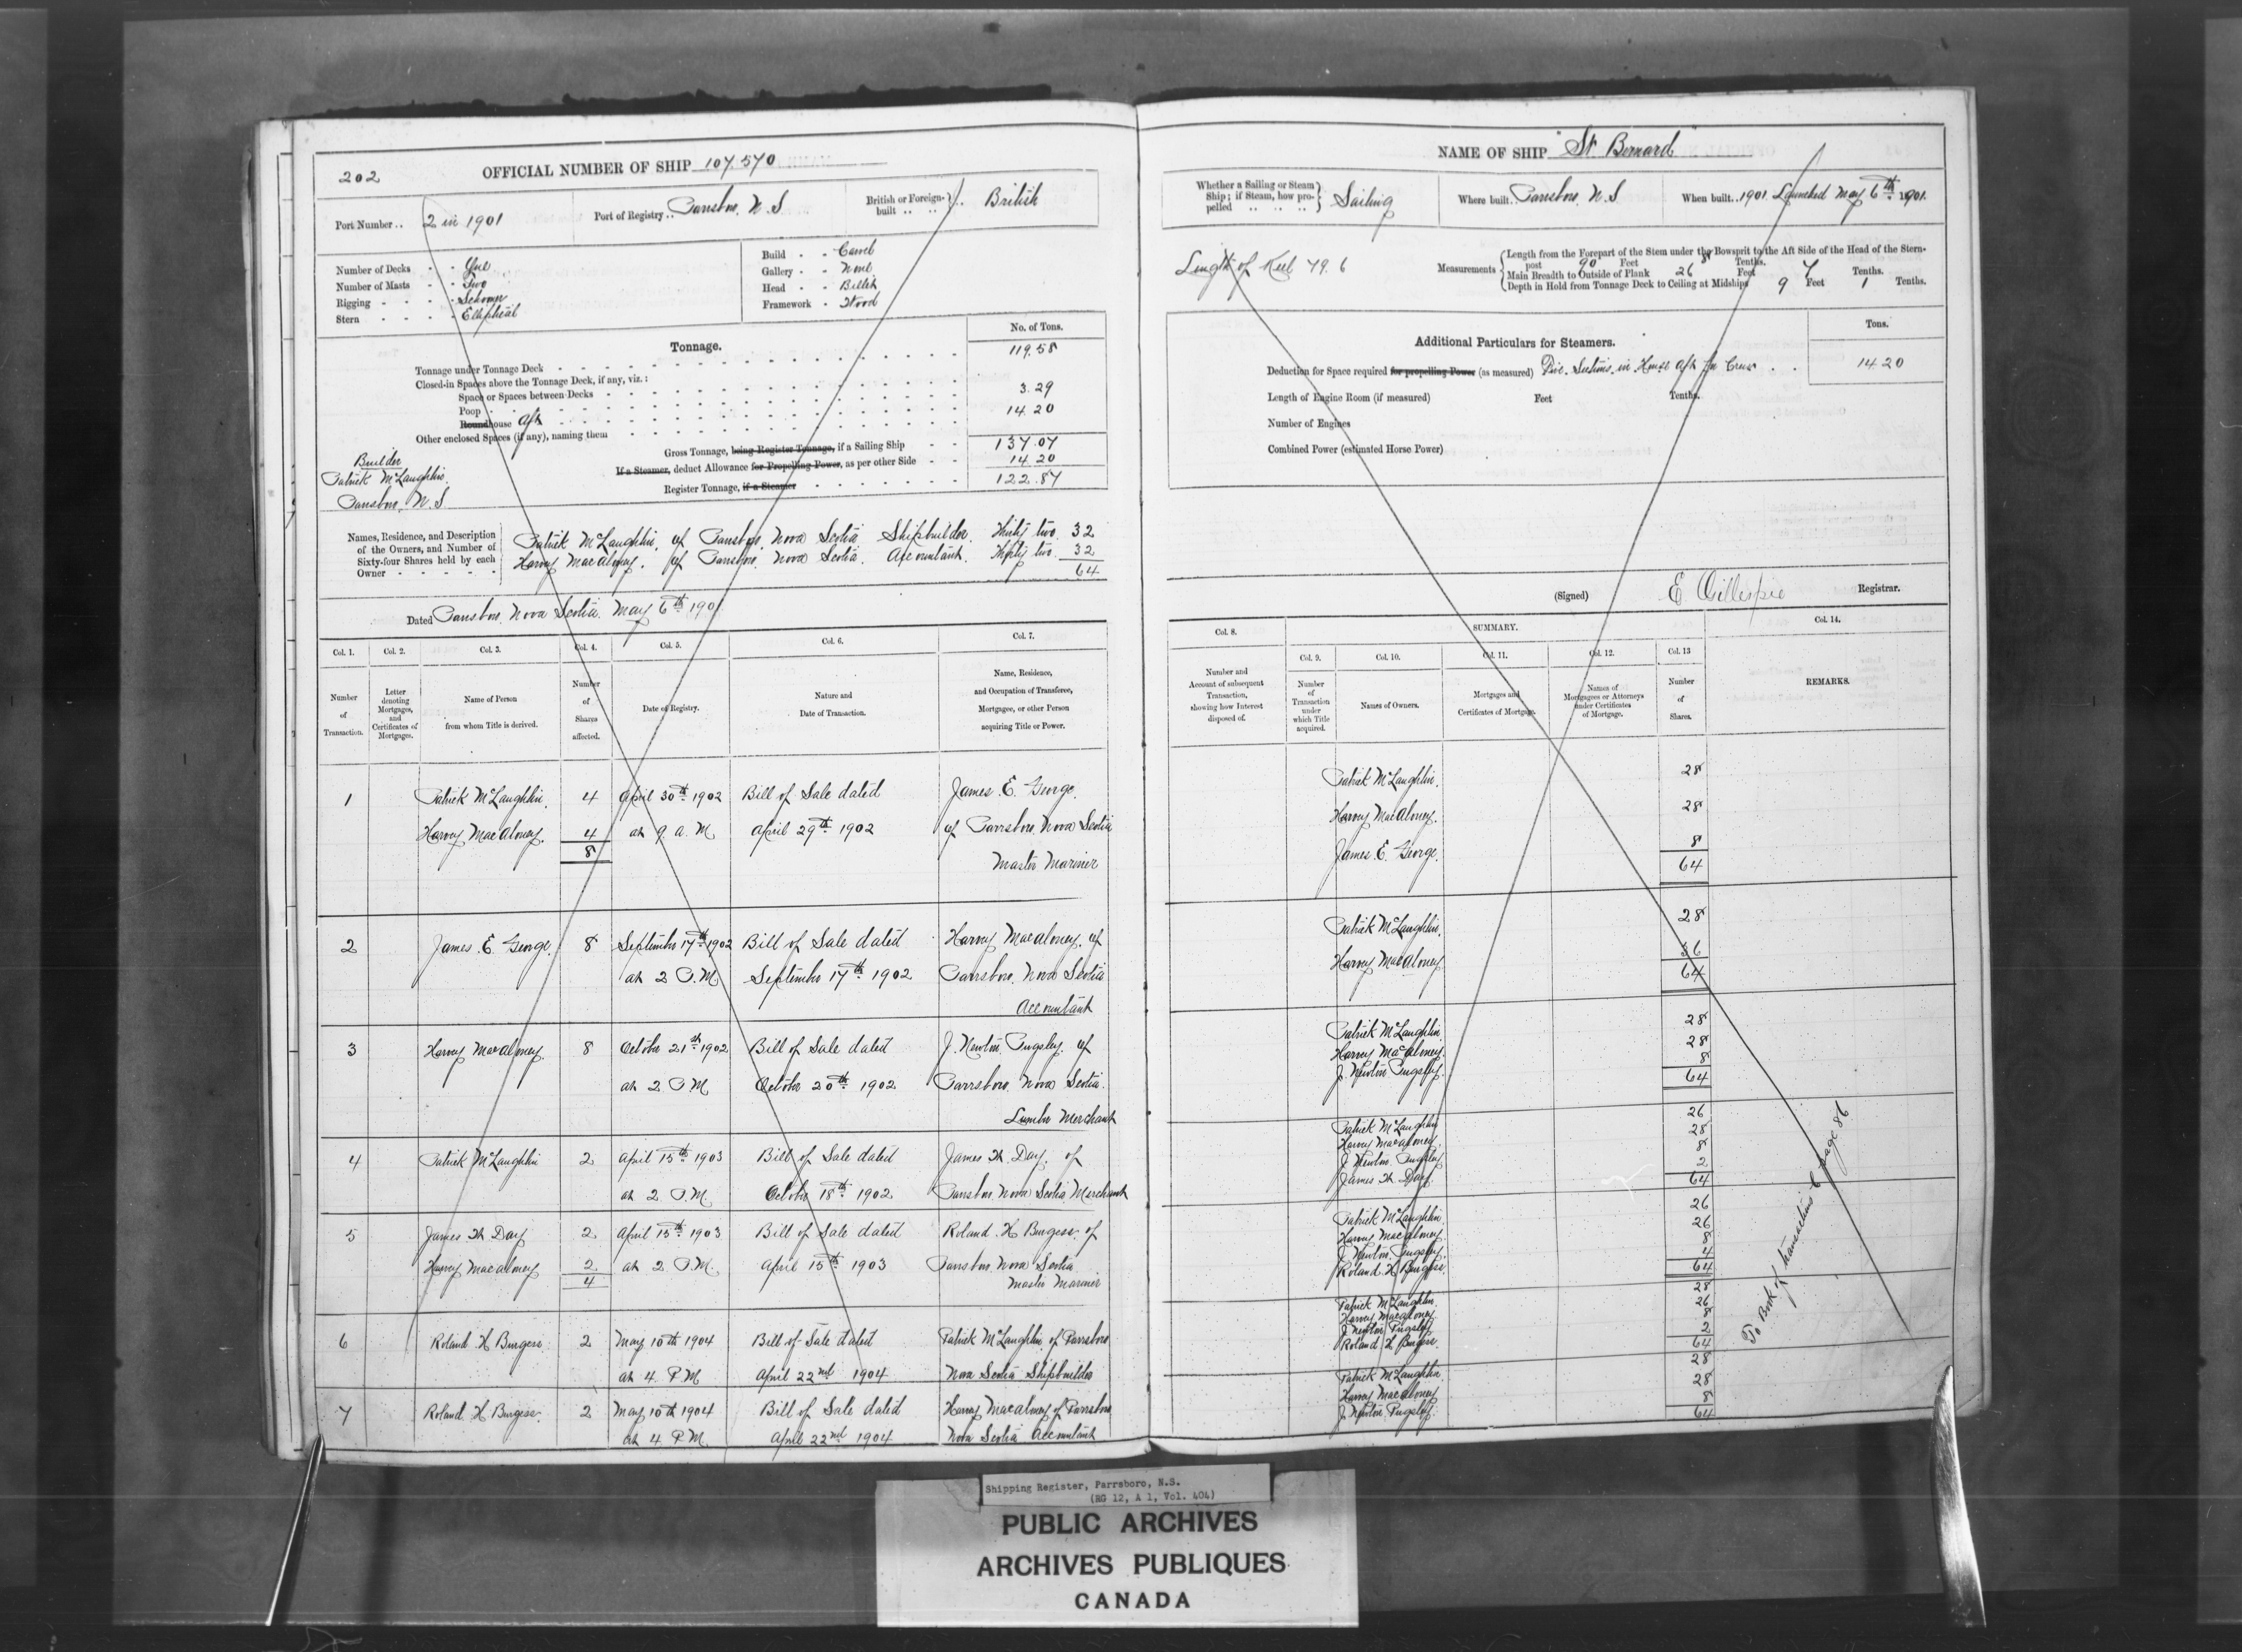 202
OFFICIAL NUMBER OF SHIP 107.570
Port Number .. 2 in 1901
Port of Registry .. Parrsboro, N.S
British or Foreign-built .. .. British
Number of Decks - - One
Number of Masts - - Two
Rigging - - - Schooner
Stern - - - - Elliptical
Build - - Carvel
Gallery - - None
Head - - Billet
Framework - Wood
Tonnage.
No. of Tons.
Tonnage under Tonnage Deck 119.58
Closed-in Spaces above the Tonnage Deck, if any, viz.:
Space or Spaces between Decks
Poop 3.29
Roundhouse Aft 14.20
Other enclosed Spaces (if any), naming them
Gross Tonnage, being Register Tonnage, if a Sailing Ship - - 137.07
If a Steamer, deduct Allowance for Propelling Power, as per other Side - - 14.20
Register Tonnage, if a Steamer 122.87
Builder
Patrick McLaughlin,
Parrsboro, N.S
Names, Residence, and Description of the Owners, and Number of Sixty-four Shares held by each Owner
Patrick McLaughlin, of Parrsboro, Nova Scotia Shipbuilder. Thirty two. 32
Harvey MacAloney, of Parrsboro, Nova Scotia. Accountant. Thirty two. 32
64
Dated Parrsboro, Nova Scotia. May 6th 1901
Col. 1. Col. 2. Col. 3. Col. 4. Col. 5. Col. 6. Col. 7.
Number of Transaction.
Letter denoting Mortgages, and Certificates of Mortgages.
Name of Person from whom Title is derived.
Number of Shares affected.
Date of Registry.
Nature and Date of Transaction.
Name, Residence, and Occupation of Transferee, Mortgagee, or other Person acquiring Title or Power.
1 Patrick McLaughlin. 4 April 30th 1902 Bill of Sale dated James E. George.
Harvey MacAloney. 4 at 9 A.M April 29th 1902 of Parrsboro, Nova Scotia
8 Master Mariner
2 James E. George. 8 September 17th 1902 Bill of Sale dated Harvey MacAloney, of
at 2 P.M September 17th 1902 Parrsboro, Nova Scotia
Accountant
3 Harvey MacAloney. 8 October 21st 1902 Bill of Sale dated J. Newton Pugsley. of
at 2 P.M October 20th 1902 Parrsboro, Nova Scotia.
Lumber Merchant
4 Patrick McLaughlin 2 April 15th 1903 Bill of Sale dated James W. Day, of
at 2 P.M. October 18th 1902 Parrsboro Nova Scotia Merchant
5 James W Day 2 April 15th 1903 Bill of Sale dated Roland H Burgess. of
Harvey MacAloney 2 at 2 P.M. April 15th 1903 Parrsboro, Nova Scotia
4 Master Mariner
6 Roland H Burgess 2 May 10th 1904 Bill of Sale dated Patrick McLaughlin of Parrsboro
at 4 P.M April 22nd 1904 Nova Scotia Shipbuilder
7 Roland H Burgess. 2 May 10th 1904 Bill of Sale dated Harvey MacAloney of Parrsboro
at 4 P.M. April 22nd 1904 Nova Scotia Accountant
NAME OF SHIP "St. Bernard"
Whether a Sailing or Steam Ship; if Steam, how propelled .. .. .. Sailing
Where built .. Parrsboro, N.S
When built .. 1901. Launched May 6th 1901.
Length of Keel 79.6
Measurements
Length from the Forepart of the Stem under the Bowsprit to the Aft Side of the Head of the Stern-
post 90 Feet 8 Tenths.
Main Breadth to Outside of Plank 26 Feet 7 Tenths.
Depth in Hold from Tonnage Deck to Ceiling at Midships 9 Feet 1 Tenths.
Additional Particulars for Steamers.
Tons.
Deduction for Space required for propelling Power (as measured) in House Aft for Crew 14 20
Length of Engine Room (if measured) Feet Tenths.
Number of Engines
Combined Power (estimated Horse Power)
(Signed) E Gillespie Registrar.
Col. 8. SUMMARY. Col. 14.
Col. 9. Col. 10. Col. 11. Col. 12. Col. 13
Number and Account of subsequent Transaction, showing how Interest disposed of.
Number of Transaction under which Title acquired.
Names of Owners.
Mortgages and Certificates of Mortgage.
Names of Mortgagees or Attorneys under Certificates of Mortgage.
Number of Shares.
REMARKS.
Patrick McLaughlin. 28
Harvey MacAloney. 28
James E. George. 8
64
Patrick McLaughlin. 28
Harvey MacAloney 36
64
Patrick McLaughlin. 28
Harvey MacAloney. 28
J. Newton Pugsley. 8
64
Patrick McLaughlin 26
Harvey MacAloney 28
J. Newton Pugsley 8
James W. Day. 2
64
Patrick McLaughlin. 26
Harvey MacAloney. 26
J. Newton Pugsley. 8
Roland H Burgess. 4
64
Patrick McLaughlin. 28
Harvey MacAloney 26
J Newton Pugsley 8
Roland H Burgess. 2
64
Patrick McLaughlin. 28
Harvey MacAloney 28
J. Newton Pugsley. 8
64
To Book of transactions 6 page 86
Shipping Register, Parrsboro, N.S.
(RG 12, A 1, Vol. 404)
PUBLIC ARCHIVES
ARCHIVES PUBLIQUES
CANADA